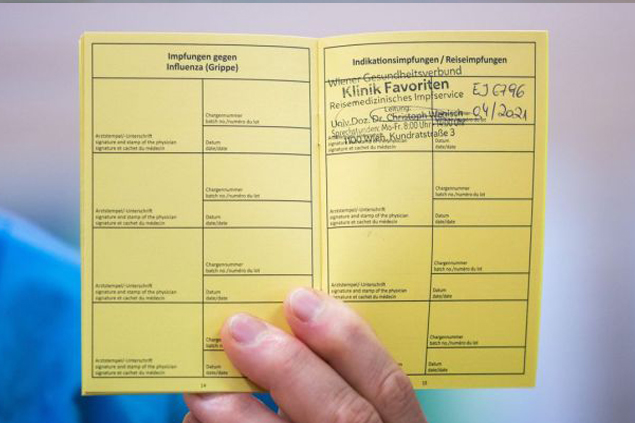 Impfungen gegen
Influenza (Grippe)
Chargennummer
batch no./numéro du lot
Arztstempel/-Unterschrift
signature and stamp of the physician
signature et cachet du médecin
Datum
date/date
Chargennummer
batch no./numéro du lot
Arztstempel/-Unterschrift
signature and stamp of the physician
signature et cachet du médecin
Datum
date/date
Chargennummer
batch no./numéro du lot
Arztstempel/-Unterschrift
signature and stamp of the physician
signature et cachet du médecin
Datum
date/date
Arztstempel/-Unterschrift
signature and stamp of the physician
signature et cachet du médecin
Datum
date/date
14
Indikationsimpfungen / Reiseimpfungen
Wiener Gesundheitsverbund
Klinik Favoriten
Reisemedizinisches Impfservice
Leitung:
Univ.Doz. Dr. Christoph Wenisch
Sprechstunden: Mo-Fr. 8:00 Uhr
1100 Wien, Kundratstraße 3
EJ6796
04/2021
Datum
date/date
Chargennummer
batch no./numéro du lot
Arztstempel/-Unterschrift
signature and stamp of the physician
signature et cachet du médecin
Datum
date/date
Chargennummer
batch no./numéro du lot
Arztstempel/-Unterschrift
signature and stamp of the physician
signature et cachet du médecin
Datum
date/date
Chargennummer
batch no./numéro du lot
Arztstempel/-Unterschrift
signature and stamp of the physician
signature et cachet du médecin
Datum
date/date